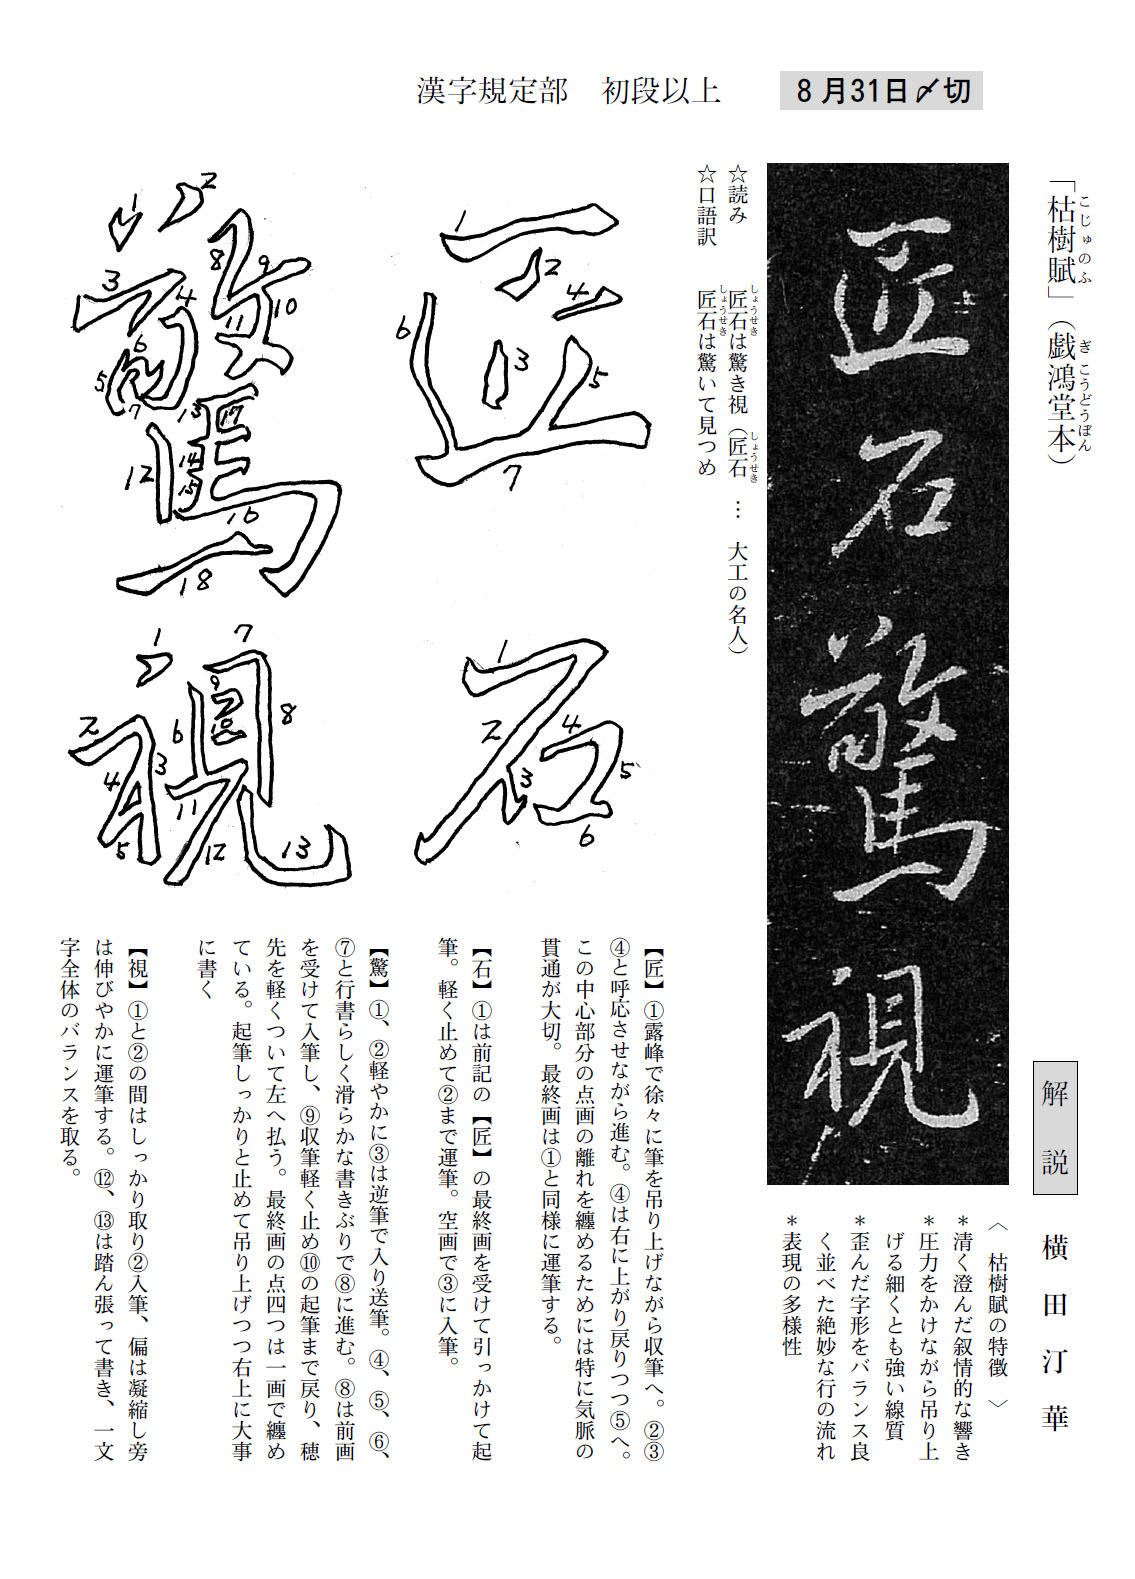 漢字規定部　初段以上
8月31日〆切
「枯樹賦」（戯鴻堂本）
こじゅのふ
ぎこうどうぼん
解説
横田汀華
〈枯樹賦の特徴〉
＊清く澄んだ叙情的な響き
＊圧力をかけながら吊り上
げる細くとも強い線質
＊歪んだ字形をバランス良
く並べた絶妙な行の流れ
＊表現の多様性
匠石驚視
☆読み　匠石は驚き視（匠石…　大工の名人）
しょうせき
しょうせき
☆口語訳　匠石は驚いて見つめ
しょうせき
匠
1
2
3
4
5
6
7
石
1
2
3
4
5
6
驚
1
2
3
4
5
6
7
8
9
10
11
12
13
14
15
16
17
18
視
1
2
3
4
5
6
7
8
9
11
12
13
【匠】①露峰で徐々に筆を吊り上げながら収筆へ。②③
④と呼応させながら進む。④は右に上がり戻りつつ⑤へ。
この中心部分の点画の離れを纏めるためには特に気脈の
貫通が大切。最終画は①と同様に運筆する。
【石】①は前記の【匠】の最終画を受けて引っかけて起
筆。軽く止めて②まで運筆。空画で③に入筆。
【驚】①、②軽やかに③は逆筆で入り送筆。④、⑤、⑥、
⑦と行書らしく滑らかな書きぶりで⑧に進む。⑧は前画
を受けて入筆し、⑨収筆軽く止め⑩の起筆まで戻り、穂
先を軽くついて左へ払う。最終画の点四つは一画で纏め
ている。起筆しっかりと止めて吊り上げつつ右上に大事
に書く
【視】①と②の間はしっかり取り②入筆、偏は凝縮し旁
は伸びやかに運筆する。⑫、⑬は踏ん張って書き、一文
字全体のバランスを取る。